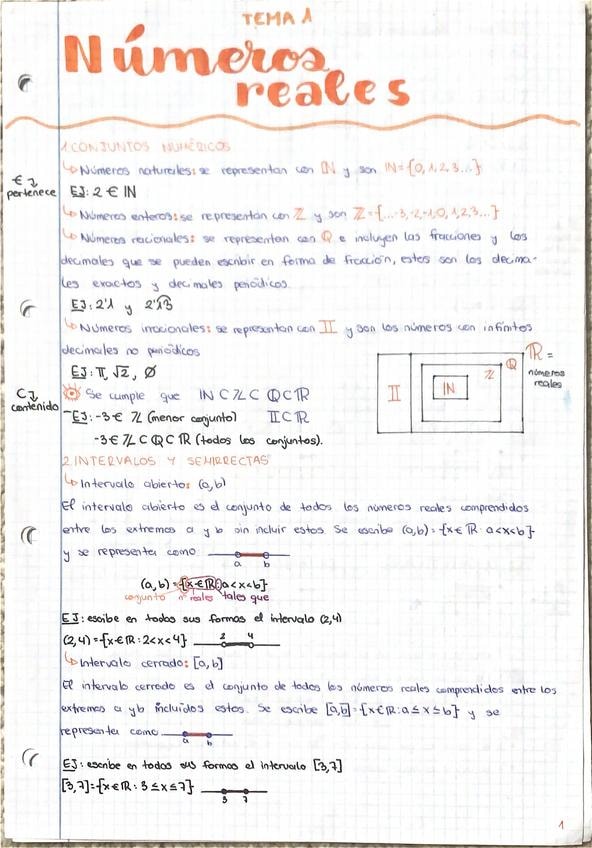 TEMA 1
Números
reales
1. CONJUNTOS NUMÉRICOS
↳ Números naturales: se representan con ℕ y son ℕ={0,1,2,3...}
€ ↴
pertenece
EJ: 2 € ℕ
↳ Números enteros: se representan con ℤ y son ℤ={...-3,-2,-1,0,1,2,3...}
↳ Números racionales: se representan con ℚ e incluyen las fracciones y los
decimales que se pueden escribir en forma de fracción, estos son los decima-
les exactos y decimales periódicos.
EJ: 2'1 y 2'13
↳ Números irracionales: se representan con 𝕀 y son los números con infinitos
decimales no periódicos
EJ: π, √2, Ø
𝕀 ℕ ℤ ℚ ℝ =
números
reales
C ↴
contenido
Se cumple que ℕ C ℤ C ℚ C ℝ
EJ: -3 € ℤ (menor conjunto) 𝕀 C ℝ
-3 € ℤ C ℚ C ℝ (todos los conjuntos).
2. INTERVALOS Y SEMIRRECTAS
↳ Intervalo abierto: (a,b)
El intervalo abierto es el conjunto de todos los números reales comprendidos
entre los extremos a y b sin incluir estos. Se escribe (a,b)={x€ℝ: a<x<b}
y se representa como
a b
(a,b)={x€ℝ: a<x<b}
conjunto nº reales tales que
EJ: escibe en todas sus formas el intervalo (2,4)
(2,4)={x€ℝ: 2<x<4} 2 4
↳ Intervalo cerrado: [a,b]
El intervalo cerrado es el conjunto de todos los números reales comprendidos entre los
extremos a y b incluidos estos. Se escribe [a,b]={x€ℝ: a≤x≤b} y se
representa como
a b
EJ: escribe en todas sus formas el intervalo [3,7]
[3,7]={x€ℝ: 3≤x≤7}
3 7
1